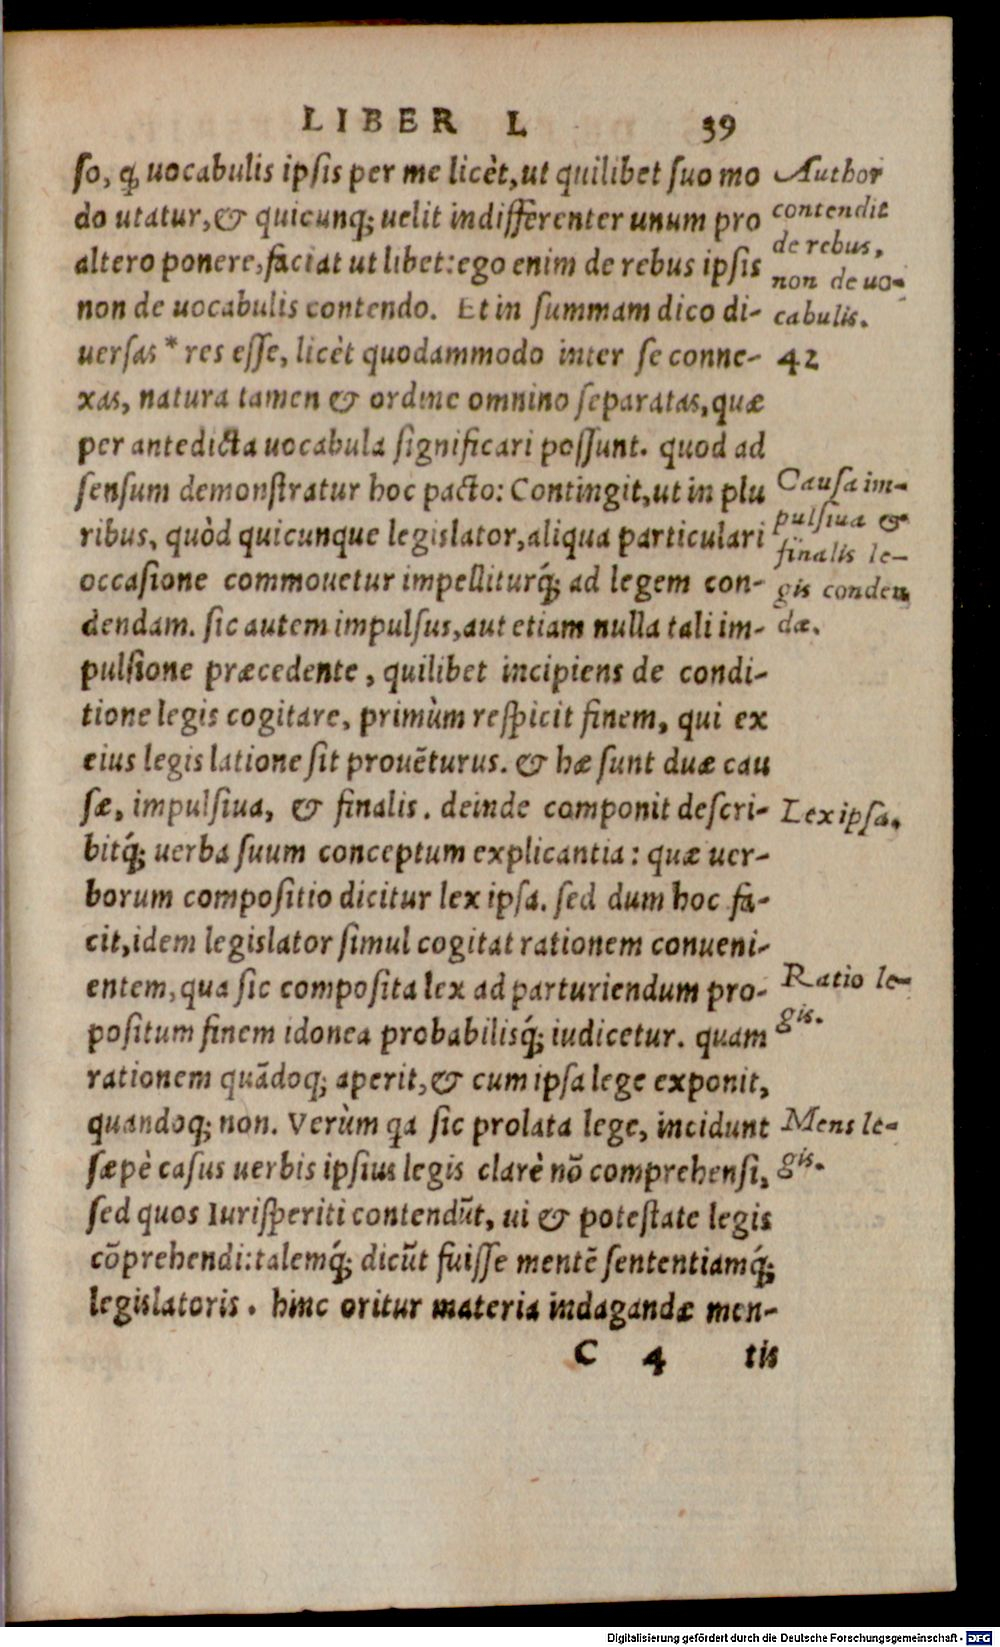 LIBER I. 39
so, ꝙ uocabulis ipsis per me licèt, ut quilibet suo mo
do utatur, & quicunq; uelit indifferenter unum pro
altero ponere, faciat ut libet: ego enim de rebus ipsis
non de uocabulis contendo. Et in summam dico di-
uersas * res esse, licèt quodammodo inter se conne-
xas, natura tamen & ordine omnino separatas, quæ
per antedicta uocabula significari possunt. quod ad
sensum demonstratur hoc pacto: Contingit, ut in plu
ribus, quòd quicunque legislator, aliqua particulari
occasione commouetur impelliturq́; ad legem con-
dendam. sic autem impulsus, aut etiam nulla tali im-
pulsione præcedente, quilibet incipiens de condi-
tione legis cogitare, primùm respicit finem, qui ex
eius legis latione sit prouẽturus. & hæ sunt duæ cau
sæ, impulsiua, & finalis. deinde componit descri-
bitq́; uerba suum conceptum explicantia: quæ uer-
borum compositio dicitur lex ipsa. sed dum hoc fa-
cit, idem legislator simul cogitat rationem conueni-
entem, qua sic composita lex ad parturiendum pro-
positum finem idonea probabilisq́; iudicetur. quam
rationem quãdoq; aperit, & cum ipsa lege exponit,
quandoq; non. Verùm qa sic prolata lege, incidunt
sæpè casus uerbis ipsius legis clarè nõ comprehensi,
sed quos Iurisperiti contendũt, ui & potestate legis
cõprehendi: talemq́; dicũt fuisse mentẽ sententiamq́;
legislatoris. hinc oritur materia indagandæ men-
C 4 tis
Author
contendit
de rebus,
non de uo-
cabulis.
42
Causa im-
pulsiua &
finalis le-
gis conden
dæ.
Lex ipsa.
Ratio le-
gis.
Mens le-
gis.
Digitalisierung gefördert durch die Deutsche Forschungsgemeinschaft - DFG